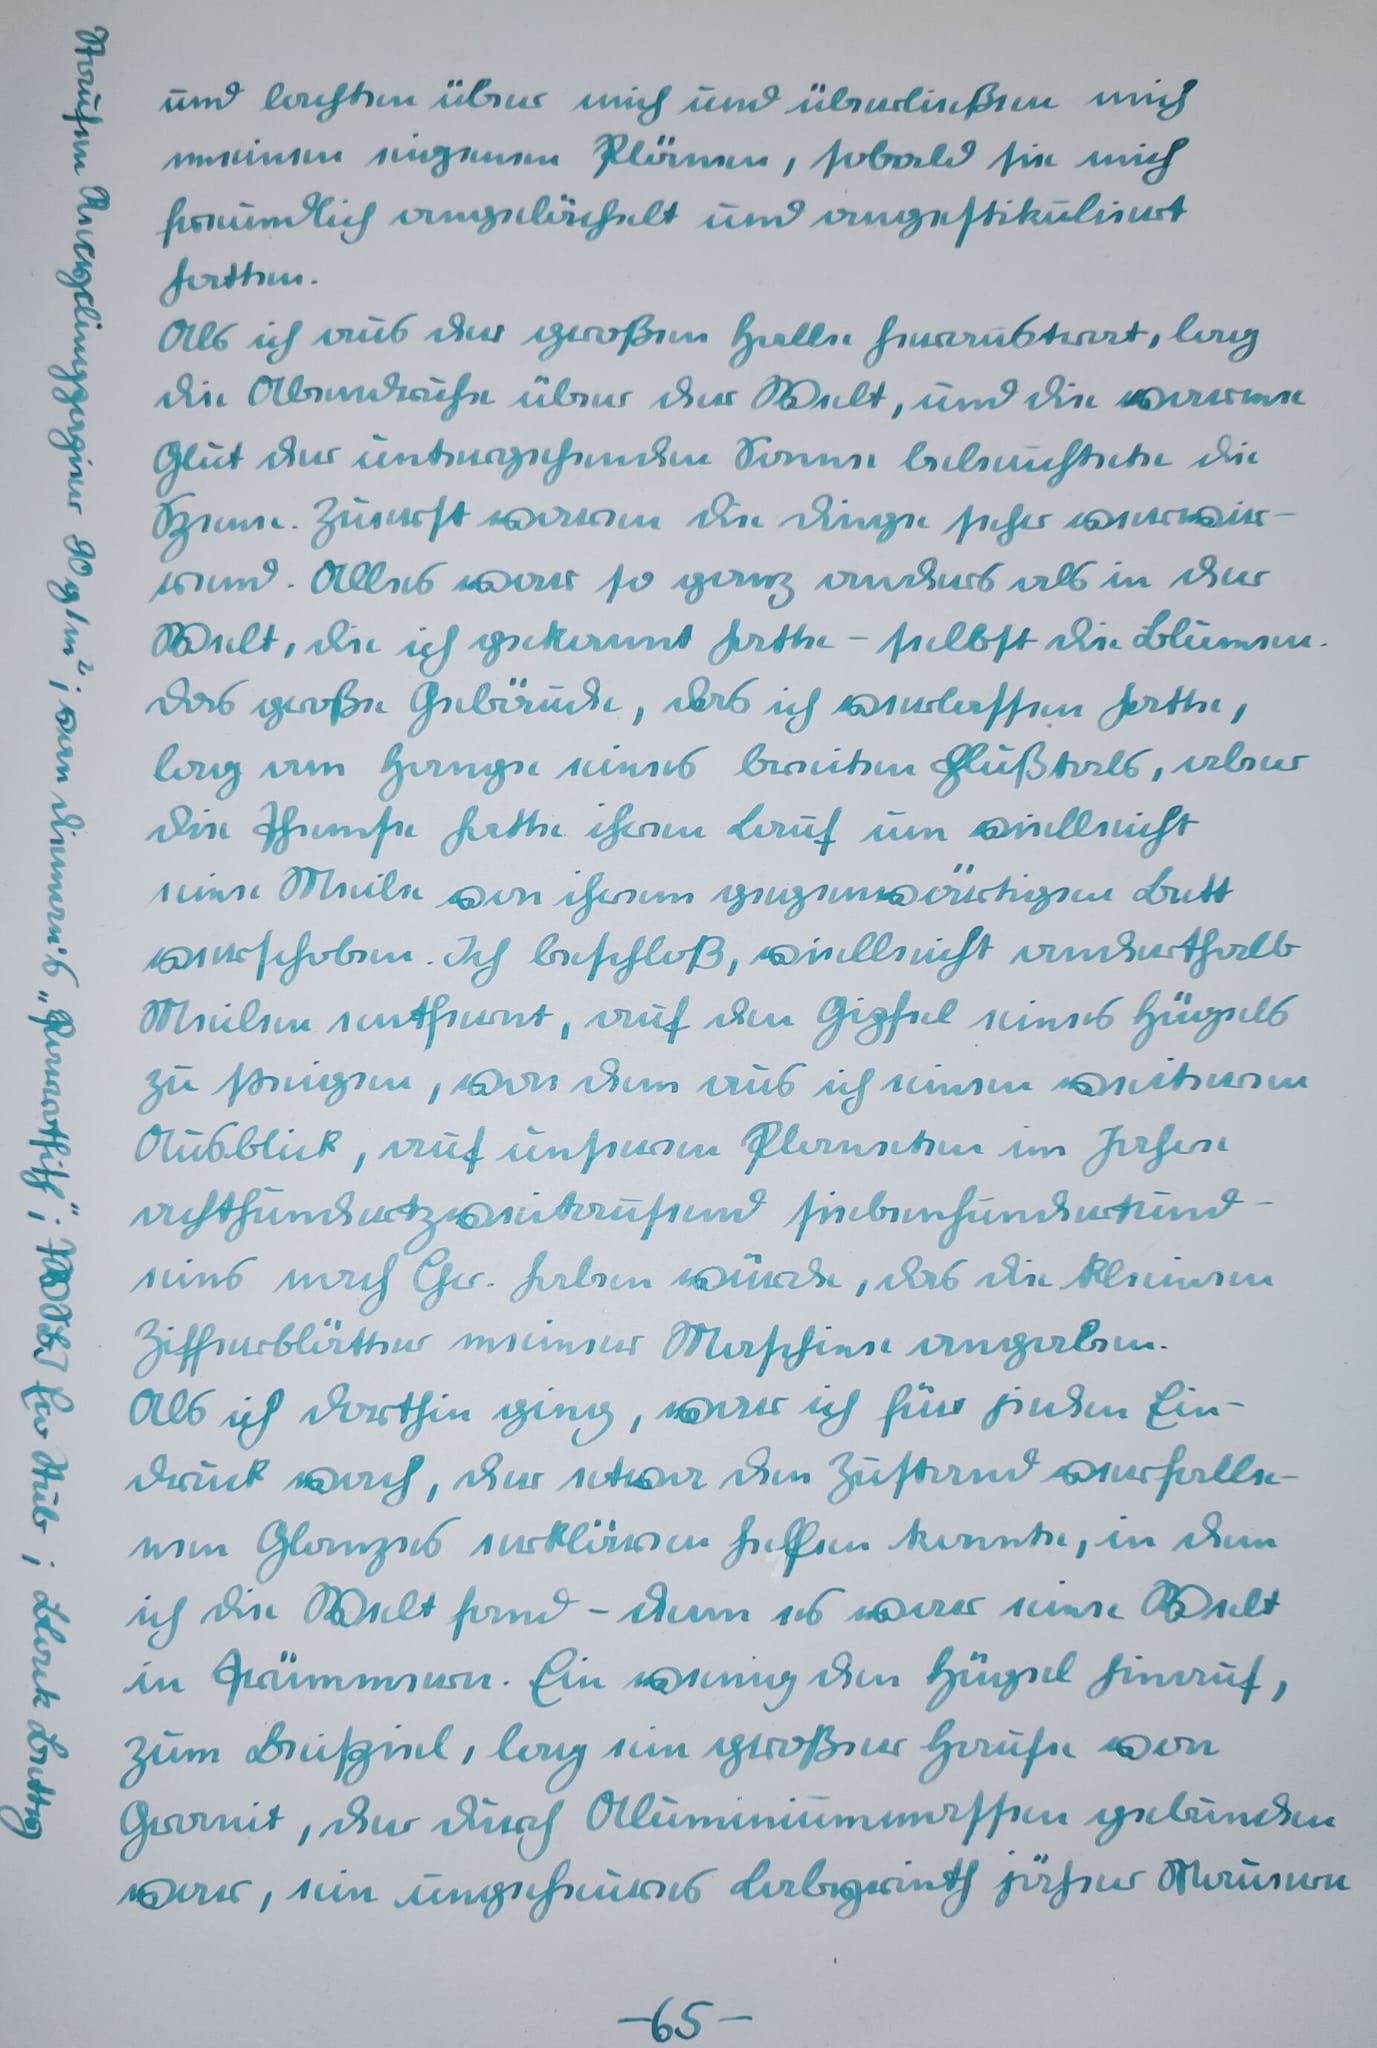 und lachten über mich und überließen mich
meinen eigenen Plänen, sobald sie mich
freundlich angelächelt und angestikuliert
hatten.
Als ich aus der großen Halle heraustrat, lag
die Abendruhe über der Welt, und die warme
Glut der untergehenden Sonne beleuchtete die
Szene. Zuerst waren die Dinge sehr verwir-
rend. Alles war so ganz anders als in der
Welt, die ich gekannt hatte – selbst die Blumen.
Das große Gebäude, das ich verlassen hatte,
lag am Hange eines breiten Flußtals, aber
die Themse hatte ihren Lauf um vielleicht
eine Meile von ihrem gegenwärtigen Bett
verschoben. Ich beschloß, vielleicht anderthalb
Meilen entfernt, auf den Gipfel eines Hügels
zu steigen, von dem aus ich einen weiteren
Ausblick, auf unseren Planeten im Jahre
achthundertzweitausend siebenhundertund-
eins nach Chr. haben würde, das die kleinen
Zifferblätter meiner Maschine angaben.
Als ich dorthin ging, war ich für jeden Ein-
druck wach, der etwa den Zustand verfalle-
nen Glanzes erklären helfen konnte, in dem
ich die Welt fand – denn es war eine Welt
in Trümmern. Ein wenig den Hügel hinauf,
zum Beispiel, lag ein großer Haufe von
Granit, der durch Aluminiummassen gebunden
war, ein ungeheures Labyrinth jäher Mauern
-65-
90 g/m²; van Dieman's